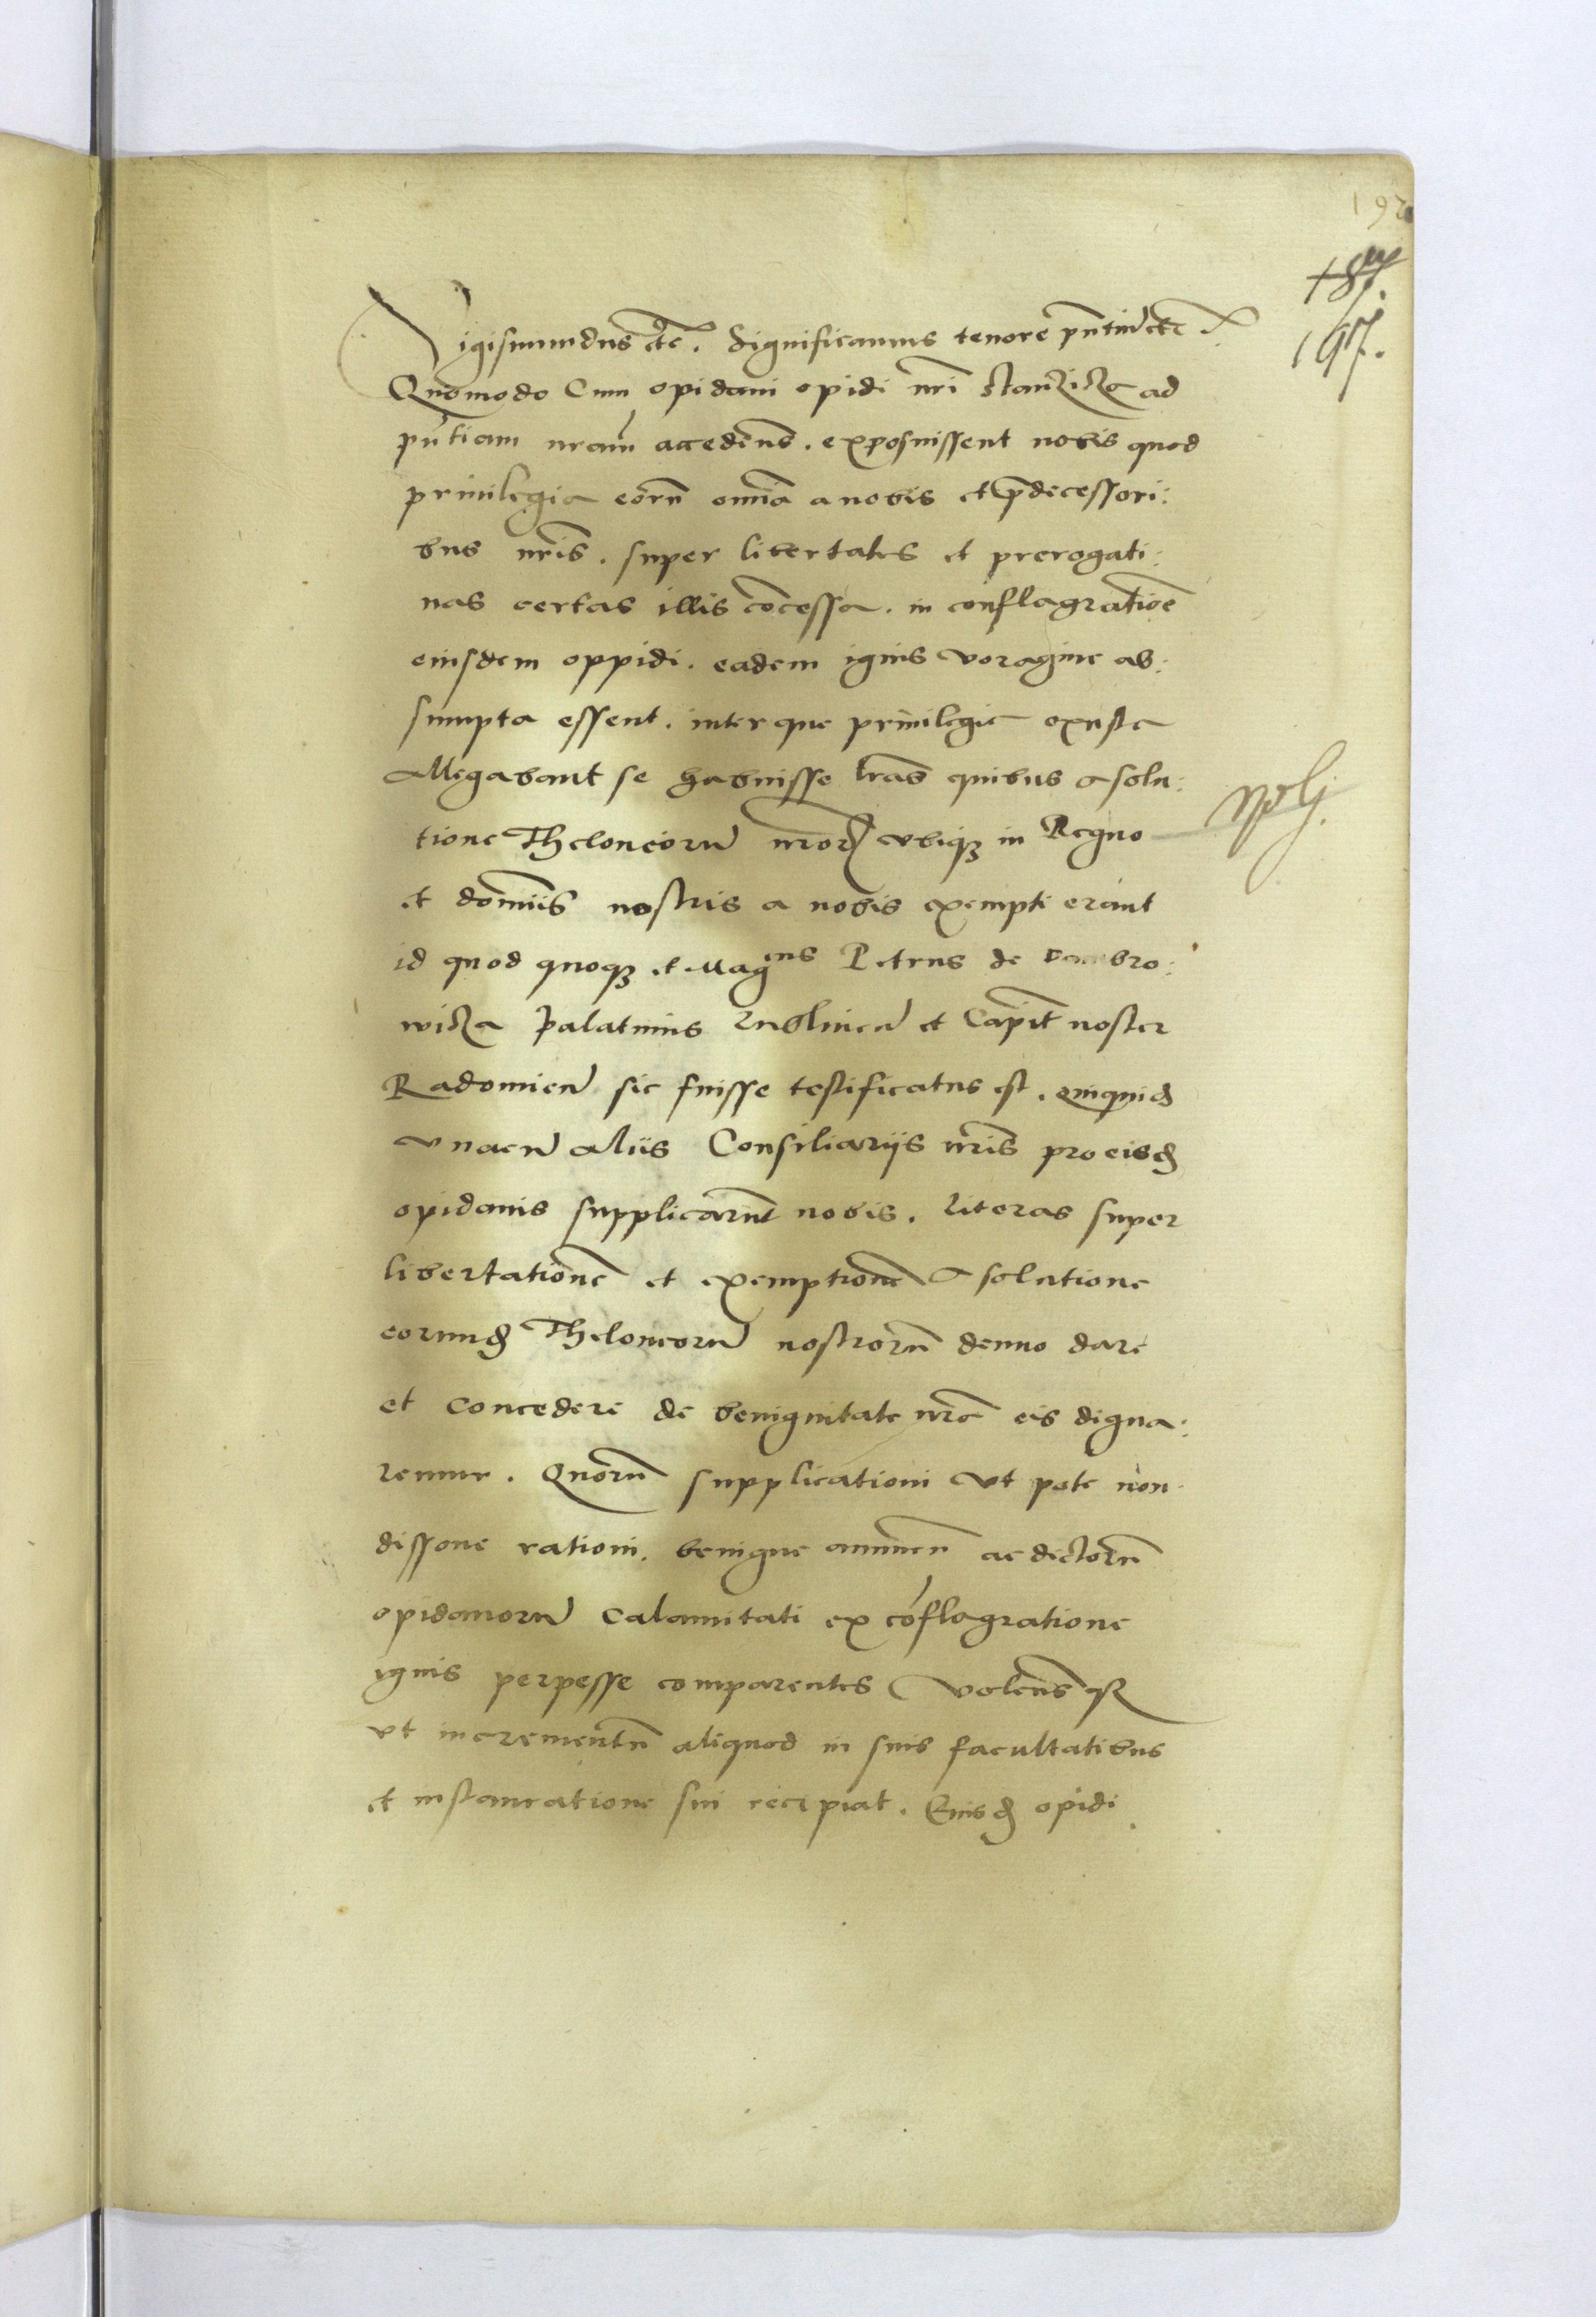 192
197.
Sigismundus etc. Significamus tenore pntiu etc.
Quomodo Cum opidani opidi nri ad
pntiam nram accedens. exposuissent nobis quod
privilegia eoru omia a nobis et pdecessori:
bus nris. super libertates et prerogati:
uas certas illis cocessa. in conflagratioe
eiusdem oppidi. eadem ignis voragine ab:
sumpta essent. inter que privilegia exusta
allegabant se habuisse lras quibus a solu:
tione Theloneoru nror ubiq in Regno
et domiis nostris a nobis exempti erant
id quod quoq et Mag^cus Petrus de Dambro:
wicza Palatinus Lublinen et Capit noster
Radomien sic fuisse testificatus est. quiquid
unacu aliis Consiliariis nris pro eisd
opidanis supplicarut nobis. literas super
libertatione et exemptione a solutione
eorund Theloneoru nostroru denuo dare
et concedere de benignitate nra eis digna:
remur. Quoru supplicationi ut pote non
dissone rationi. benigne annuen ac dictoru
opidanoru calamitati ex coflagratione
ignis perpesse comparentes volens q
ut incrementu aliquod in suis facultatibus
et instauratione sui recipiat. Eiusd opidi